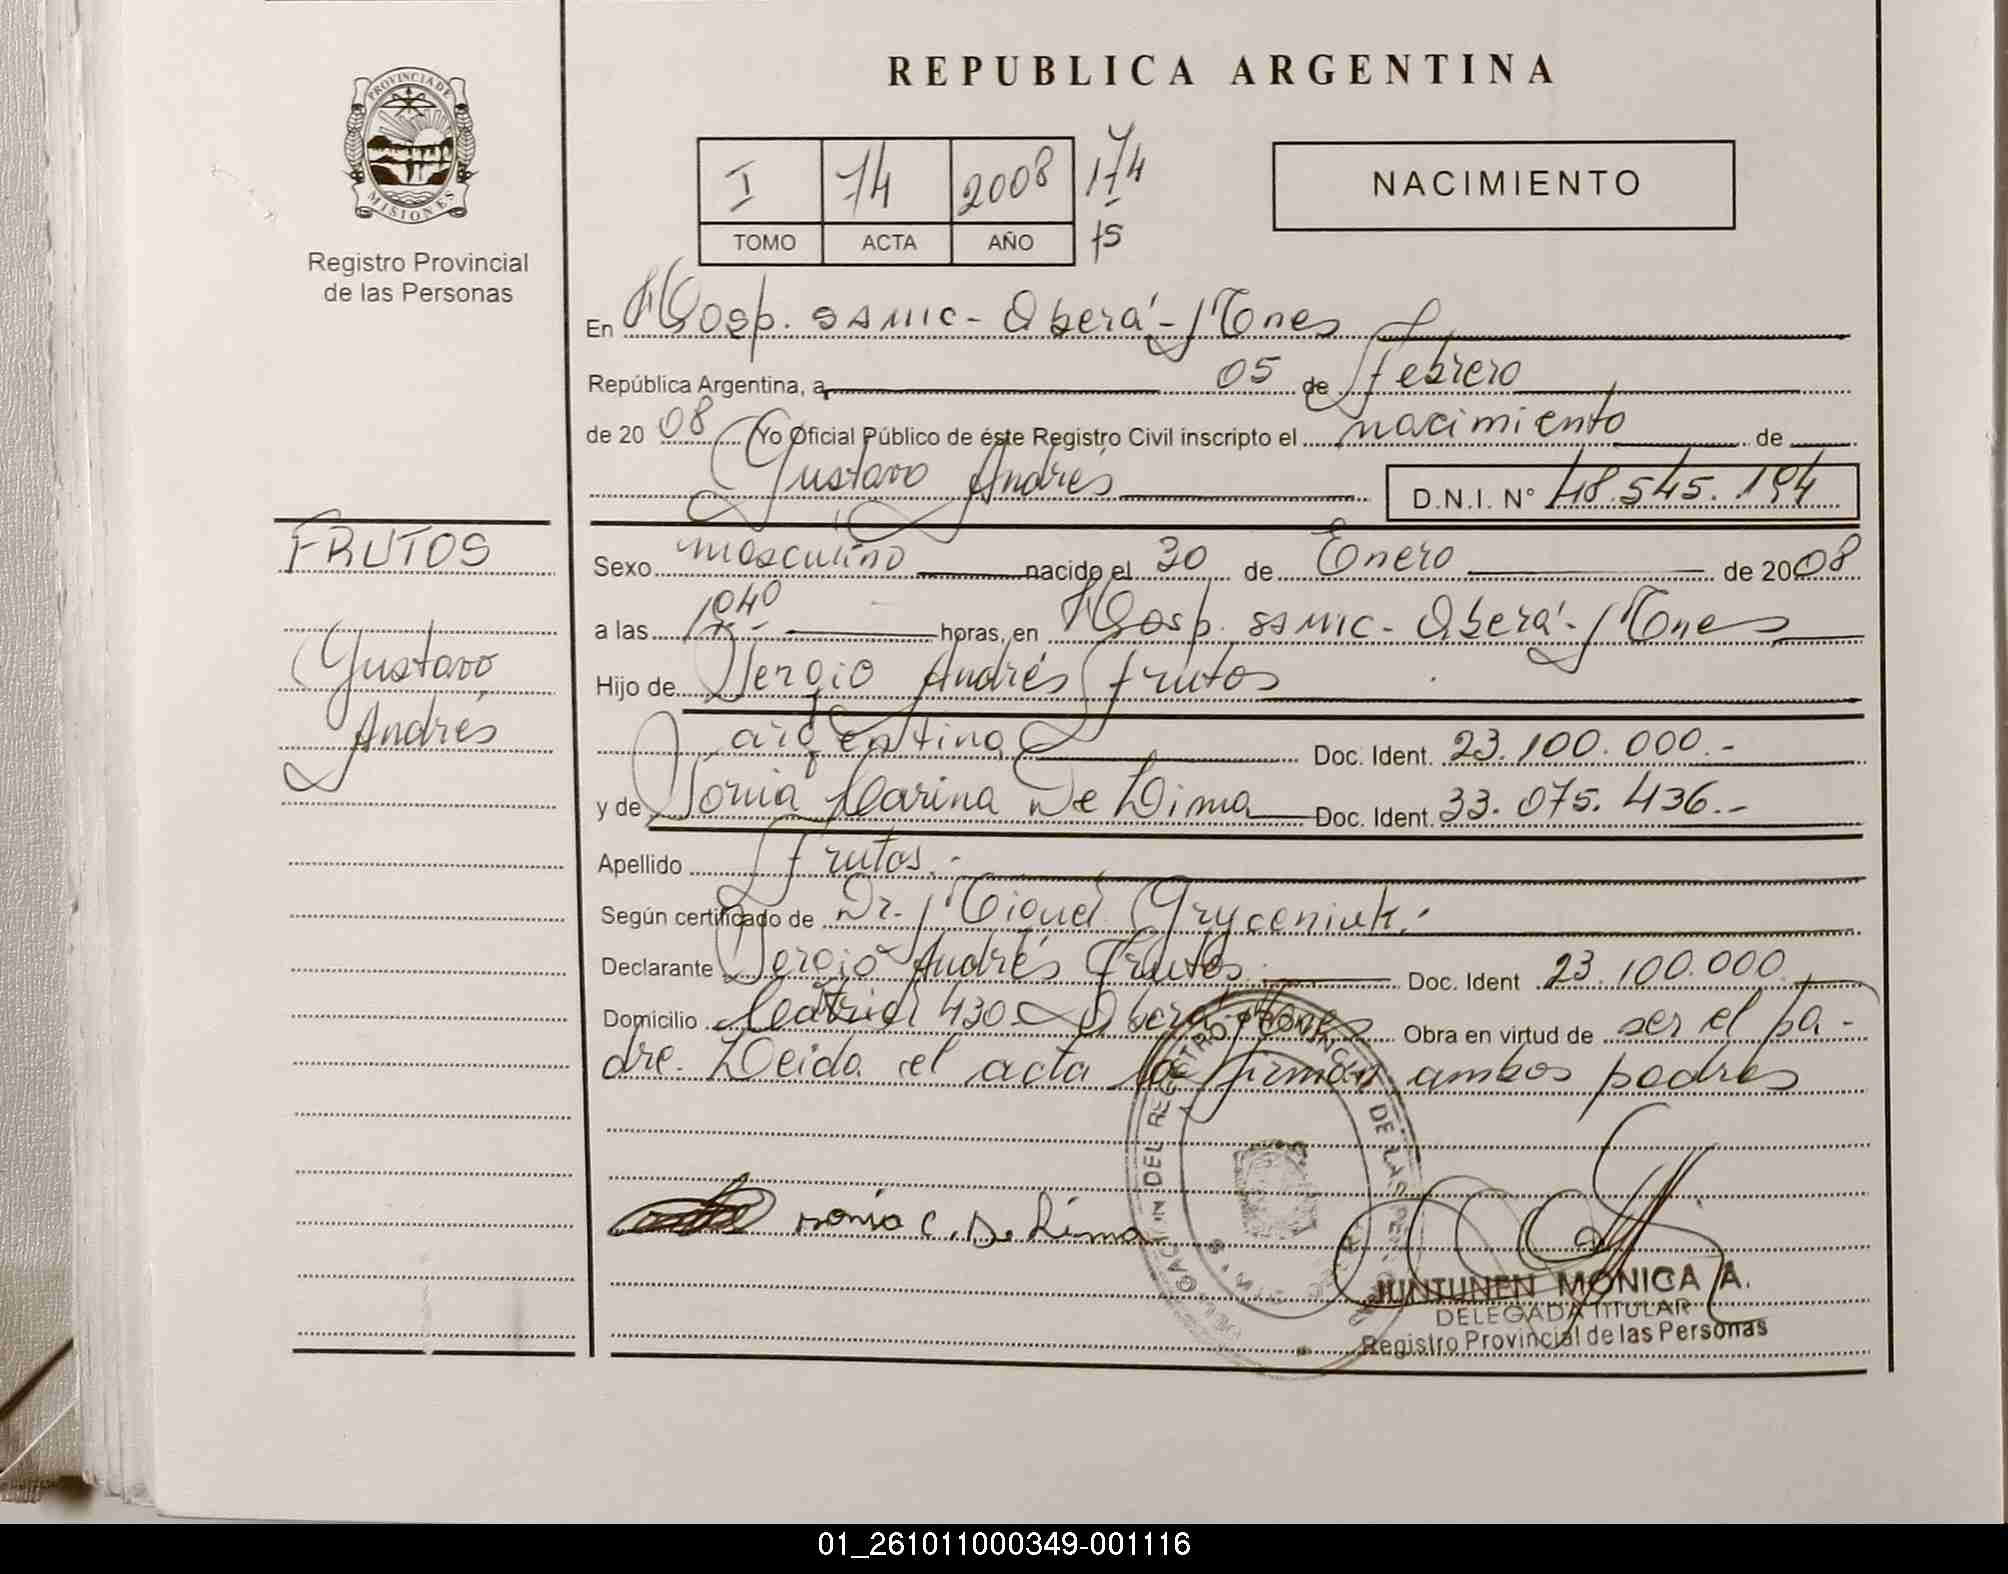 REPUBLICA ARGENTINA
PROVINCIA DE
MISIONES
Registro Provincial
de las Personas
I 74 2008 174
TOMO ACTA AÑO 75
NACIMIENTO
En Hosp. SAMIC - Oberá - Mones
República Argentina, a 05 de Febrero
de 2008 Yo Oficial Público de éste Registro Civil inscripto el nacimiento de
Gustavo Andrés D.N.I. N° 48.545.194
FRUTOS
Gustavo
Andrés
Sexo masculino nacido el 30 de Enero de 2008
a las 1040 horas, en Hosp. SAMIC - Oberá - Mones
Hijo de Sergio Andrés Frutos
argentino Doc. Ident. 23.100.000.-
y de Sonia Carina De Lima Doc. Ident. 33.075.436.-
Apellido Frutos.-
Según certificado de Dr. Miguel Gryceniuk.-
Declarante Sergio Andrés Frutos Doc. Ident 23.100.000
Domicilio Madrid 430 Oberá Mones Obra en virtud de ser el pa-
dre. Leida el acta la firman ambos padres
DEL REGISTRO PROVINCIAL DE LAS
sonia C. De Lima
JUNTUNEN MONICA A.
DELEGADA TITULAR
Registro Provincial de las Personas
01_261011000349-001116